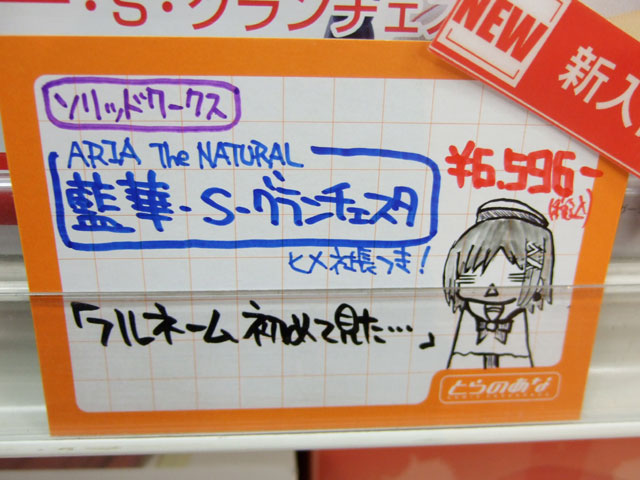 ・S・グランチェス
NEW
新入
ソリッドワークス
ARIA The NATURAL
藍華・S・グランチェスタ
¥6.596-
(税込)
ヒメ社長つき!
「フルネーム初めて見た…」
とらのあな